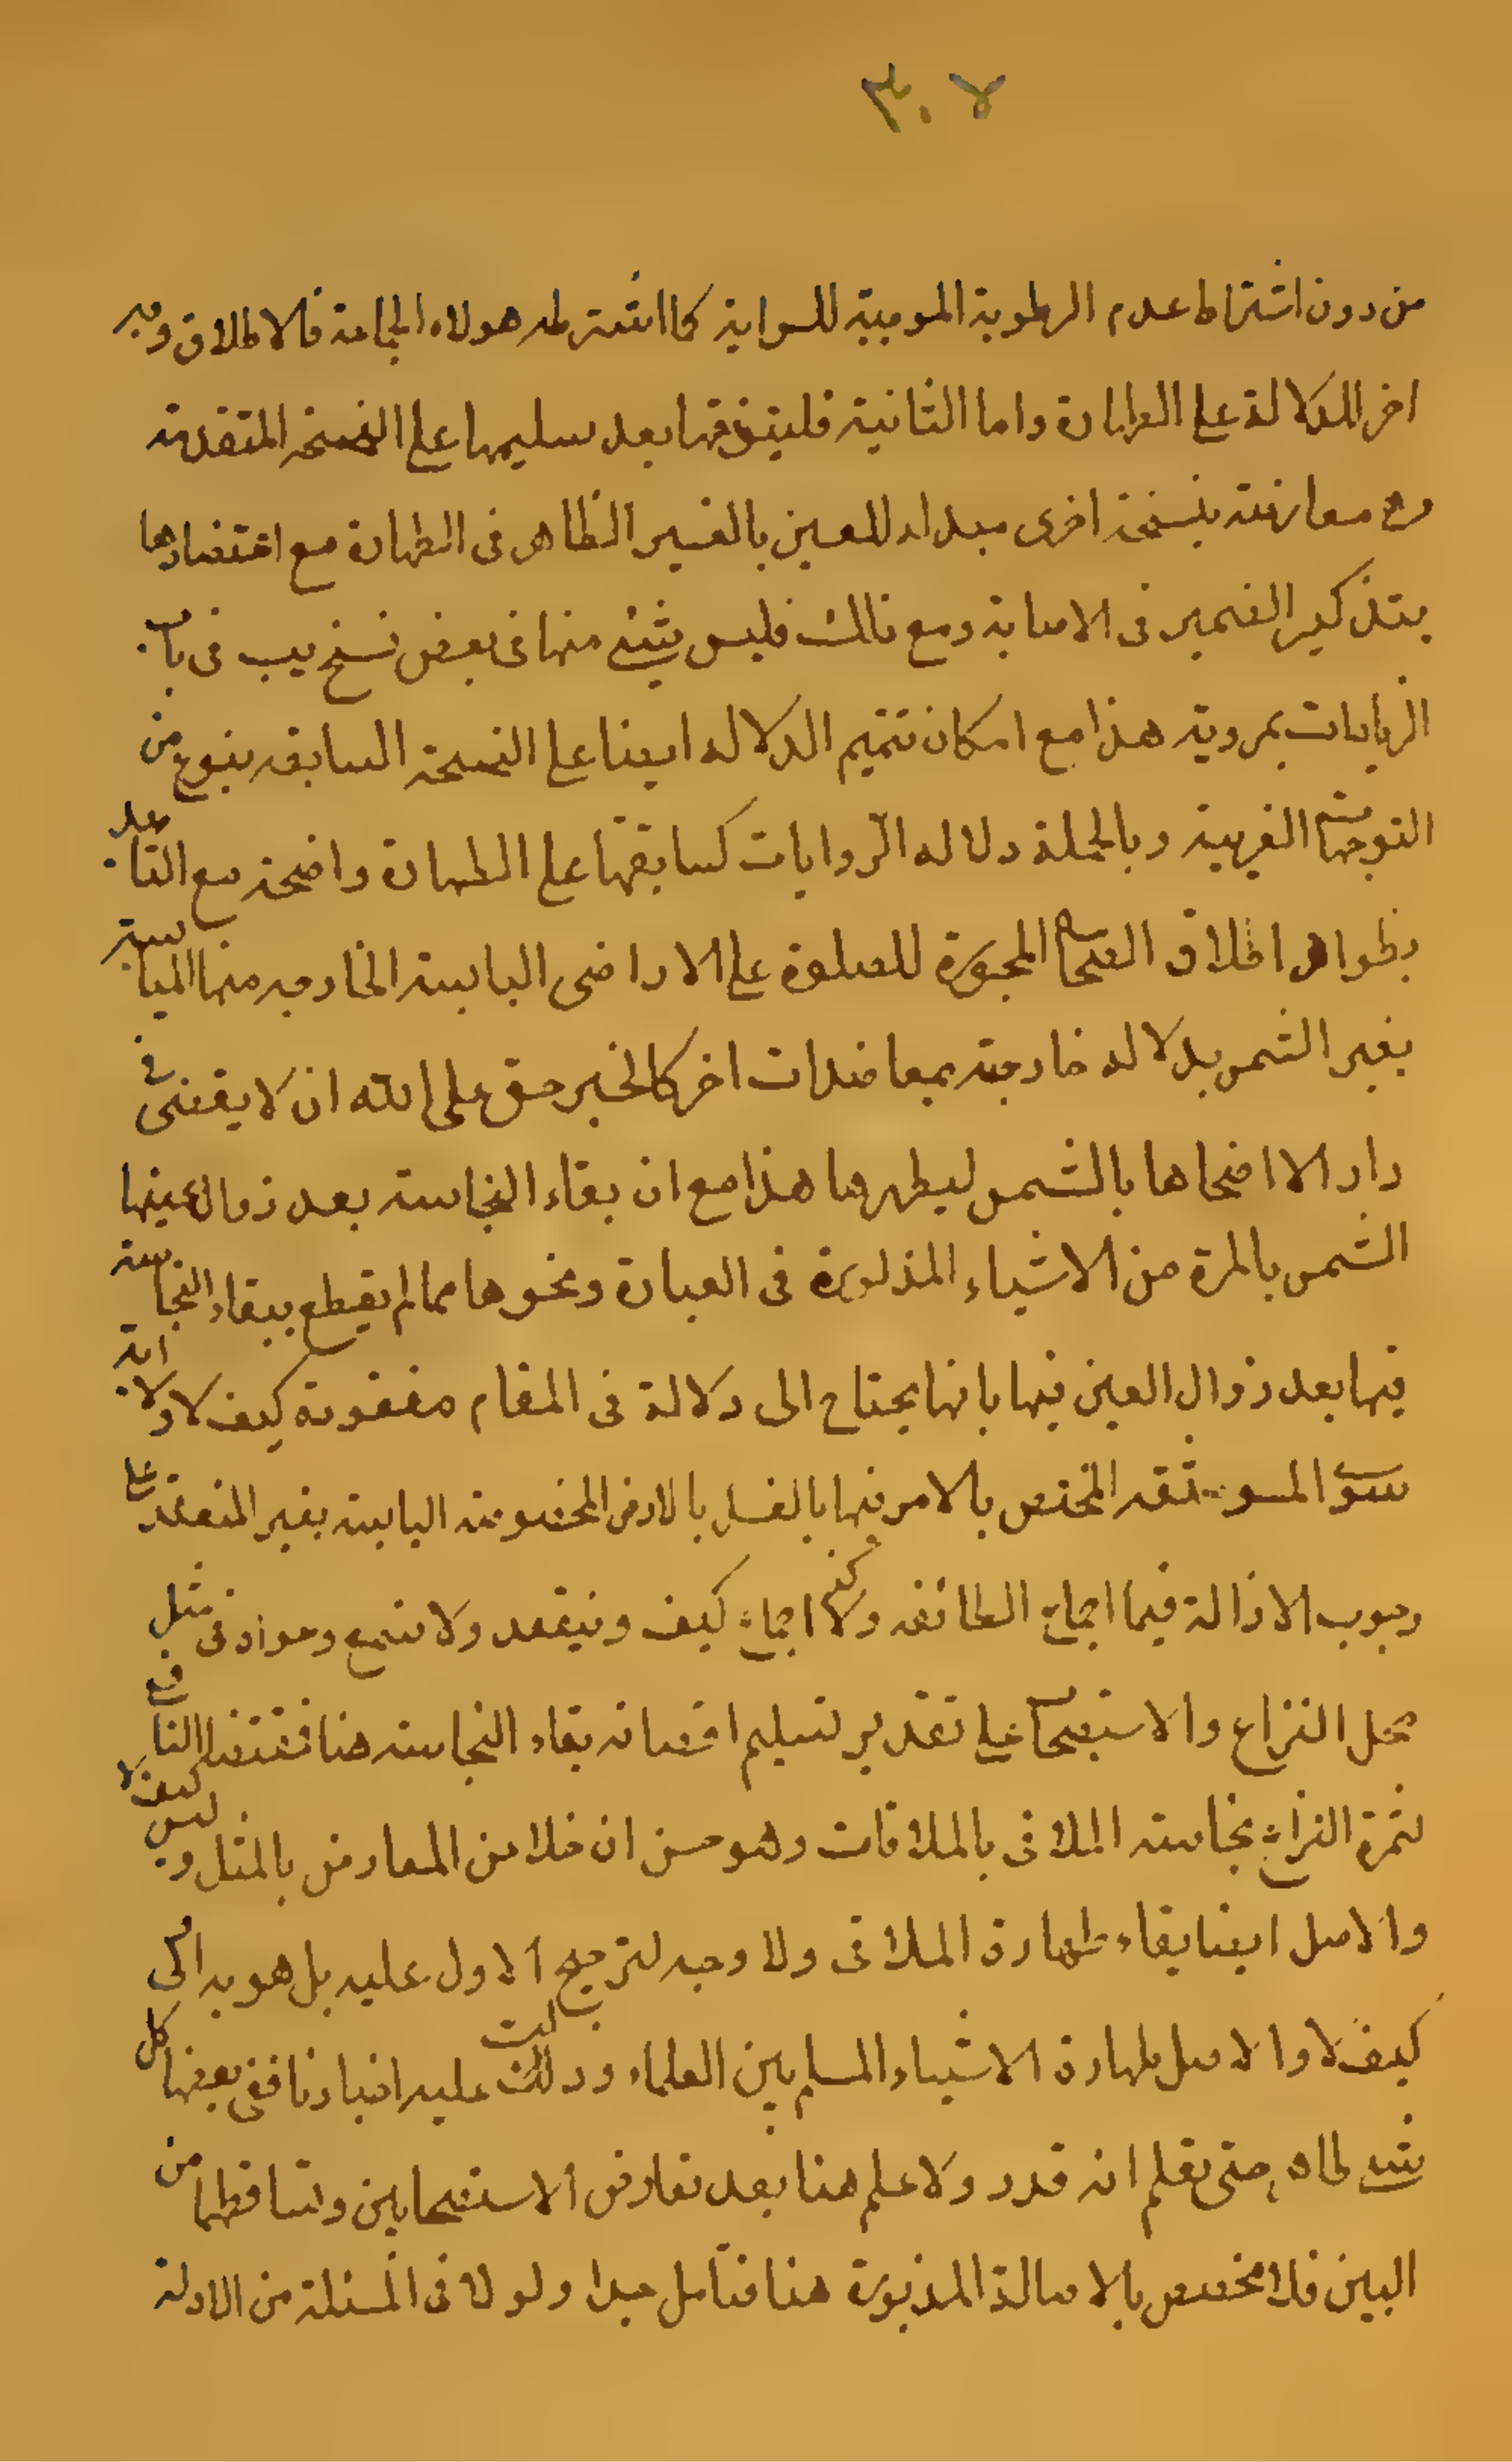 ٣٠٧
من دون اشتراط عدم الرطوبة الموجبة للسراية كما اشترطه هولاء الجماعة فالاطلاق وجه
اخر للدلالة على الطهارة واما الثانية فليتوقفها بعد تسليمها على النسخة المتقدمة
ومع معارضته بنسخة اخرى مبدله للعين بالغير الظاهر في الطهارة مع اعتضادها
بتذكير الضمير في الاصابة ومع ذلك فليس شئ منها في بعض نسخ يب في باب
الزيادات بمروية هذا مع امكان تتميم الدلاله ايضا على النسخة السابقه بنوع من
التوجيهات القريبة وبالجملة دلاله الروايات كسابقتها على الطهارة واضحة مع التأيد
بظواهر اطلاق الصحاح المجوزة للصلوة على الاراضى اليابسة الخارجه منها اليابسة
بغير الشمس بدلاله خارجة بمعاضدات اخر كالخبر حق على الله ان لا يعصى في
دار الا اضحاها بالشمس ليطهرها هذا مع ان بقاء النجاسة بعد زوال عينها
الشمس بالمرة من الاشياء المذكورة في العبارة ونحوها مما لم يقطع ببقاء النجاسة
فيها بعد زوال العين فيها بانها يحتاج الى دلالة في المقام مفقودة كيف لا ولا اية
سوى الموثقه المختص بالامر فيها بالغسل بالارض المخصوصة اليابسة بغير المنعقد على
وجوب الازالة فيما اجماع الطائفه ولا اجماع كيف وينعقد ولا نتمع وجوازه في مثل
محل النزاع والاستصحاب على تقدير تسليم اقتضائه بقاء النجاسة هنا فمقتضا النافع
لثمرة النزاع نجاسة الملاقى بالملاقات وهو حسن ان خلا من المعارض بالمثل وليس كيف لا
والاصل ايضا بقاء طهارة الملاقى ولا وجه لترجيح الاول عليه بل هو به اولى
كيف لا والاصل طهارة الاشياء المسلم بين العلماء ودلت عليه اخبارنا ففى بعضها كل
شئ طاهر حتى تعلم انه قذر ولا علم هنا بعد تعارض الاستصحابين وتساقطهما من
البين فلا مخصص بالاصالة المذبورة هنا فتأمل جدا ولولا في المسئلة من الادلة